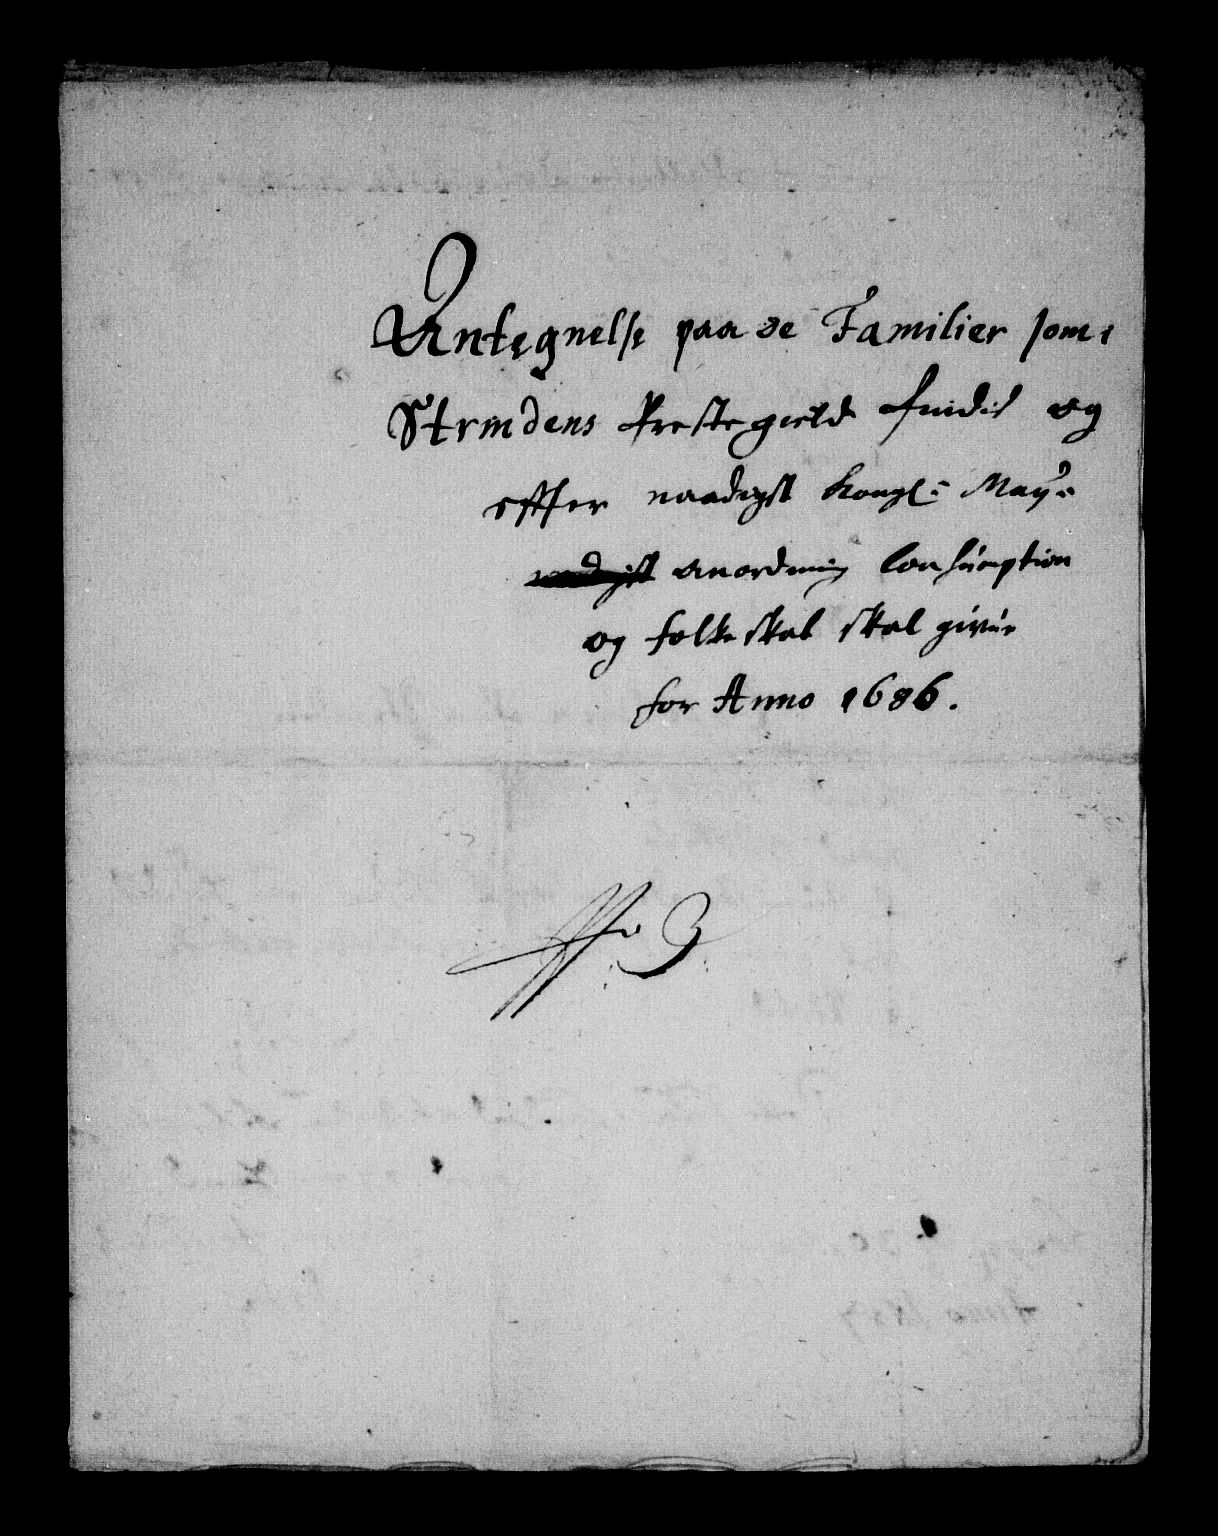 Antegnelse paa de Familier som i
Strindens Prestegield findis og
effter naadigst Kongl: May:
anordning Consumption
og folkeskat skal givue
for Anno 1686.